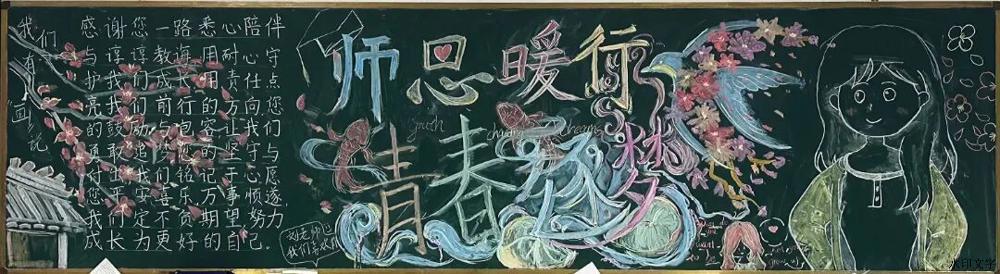 我们有"画"说
感谢您一路悉心陪伴
与谆谆教诲,用耐心守
护我们成长,用责任点
亮我们前行的方向。您
的鼓励与包容,让我们
勇敢追梦;您的坚守与
付出,我们铭记于心。愿
您平安喜乐,万事顺遂,
我们定不负期望,努力
成长为更好的自己。
师恩暖行
青春逐梦
Youth chasing dreams
水印文字